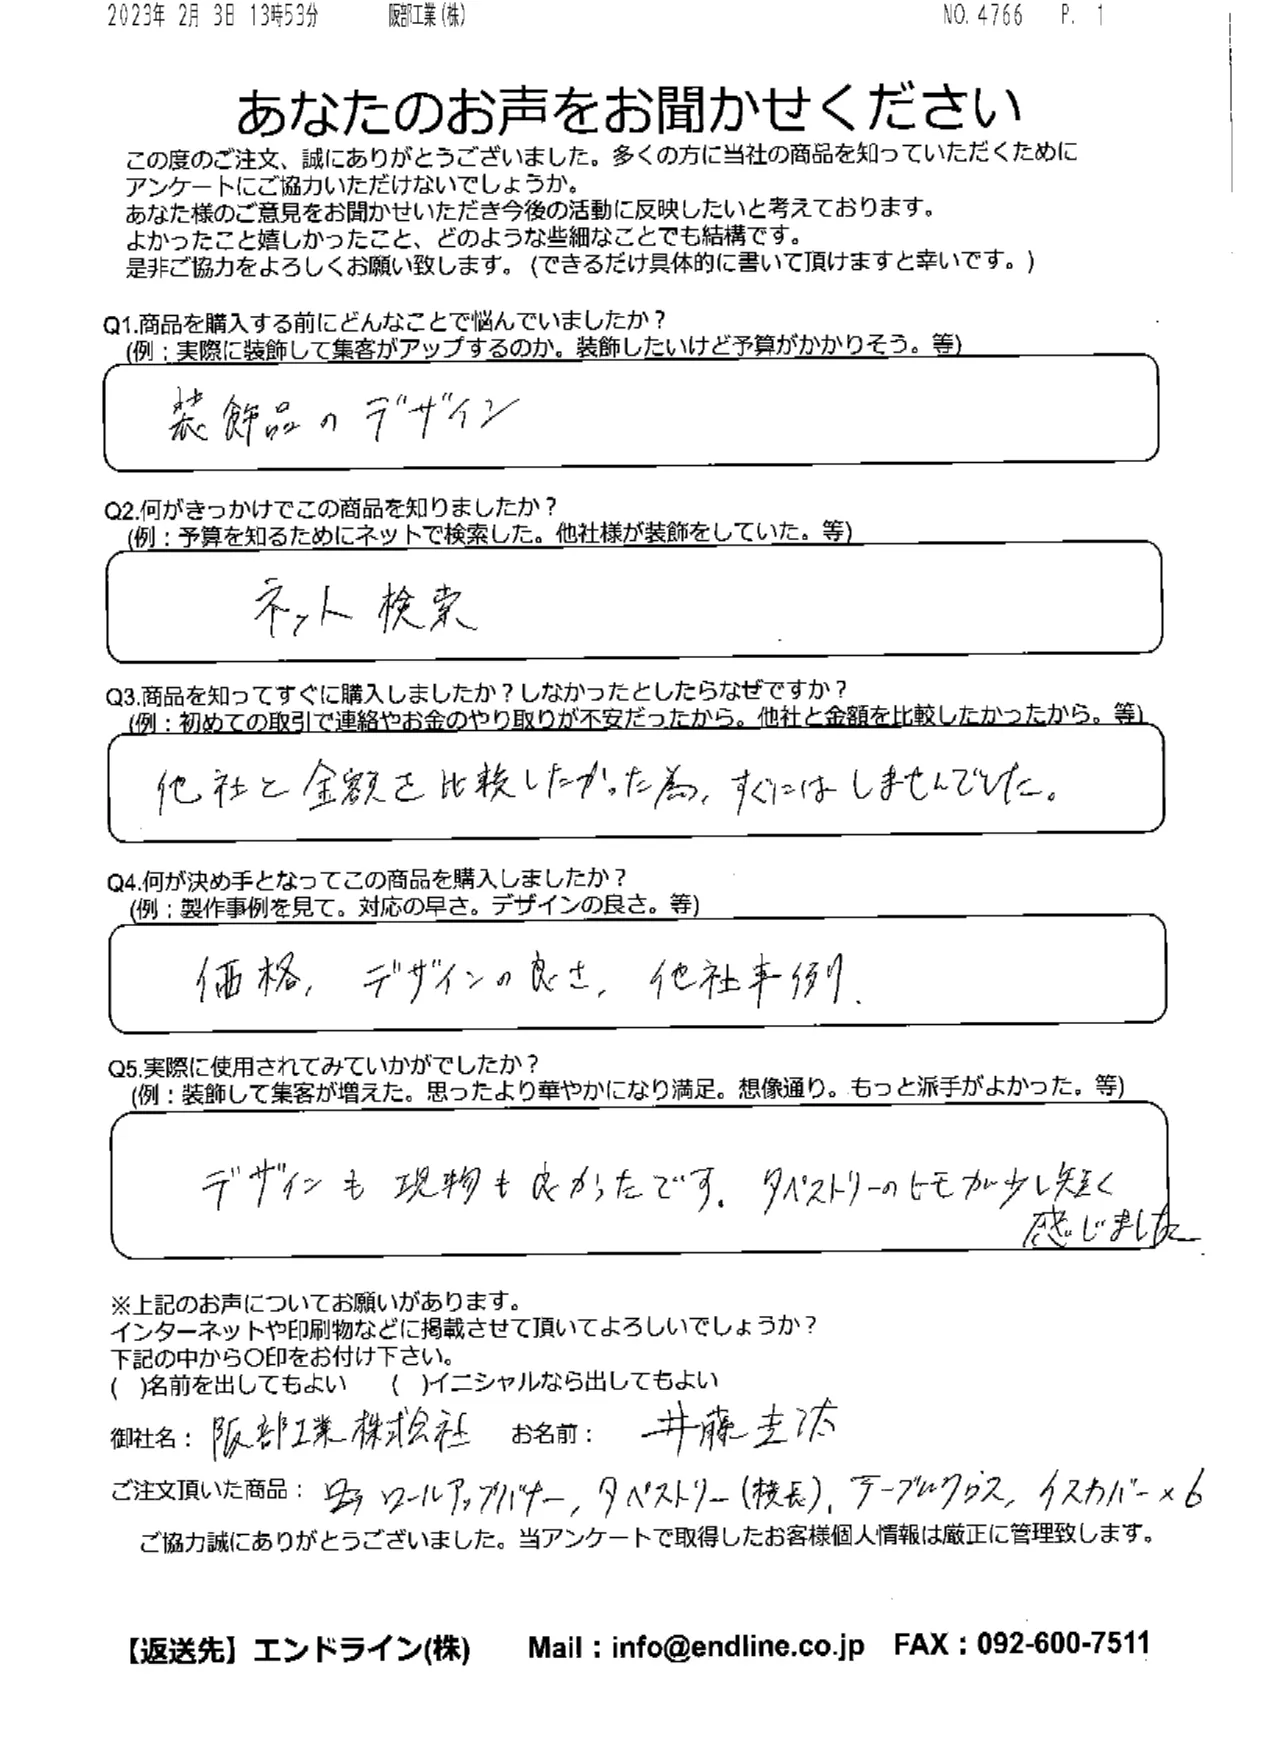 2023年 2月 3日 13時53分 阪部工業(株) NO. 4766 P. 1
あなたのお声をお聞かせください
この度のご注文、誠にありがとうございました。多くの方に当社の商品を知っていただくために
アンケートにご協力いただけないでしょうか。
あなた様のご意見をお聞かせいただき今後の活動に反映したいと考えております。
よかったこと嬉しかったこと、どのような些細なことでも結構です。
是非ご協力をよろしくお願い致します。(できるだけ具体的に書いて頂けますと幸いです。)
Q1.商品を購入する前にどんなことで悩んでいましたか？
(例：実際に装飾して集客がアップするのか。装飾したいけど予算がかかりそう。等)
装飾品のデザイン
Q2.何がきっかけでこの商品を知りましたか？
(例：予算を知るためにネットで検索した。他社様が装飾をしていた。等)
ネット検索
Q3.商品を知ってすぐに購入しましたか？しなかったとしたらなぜですか？
(例：初めての取引で連絡やお金のやり取りが不安だったから。他社と金額を比較したかったから。等)
他社と金額を比較したかった為、すぐにはしませんでした。
Q4.何が決め手となってこの商品を購入しましたか？
(例：製作事例を見て。対応の早さ。デザインの良さ。等)
価格、デザインの良さ、他社事例.
Q5.実際に使用されてみていかがでしたか？
(例：装飾して集客が増えた。思ったより華やかになり満足。想像通り。もっと派手がよかった。等)
デザインも現物も良かったです。タペストリーのヒモが少し短く
感じました
※上記のお声についてお願いがあります。
インターネットや印刷物などに掲載させて頂いてよろしいでしょうか？
下記の中から○印をお付け下さい。
( )名前を出してもよい ( )イニシャルなら出してもよい
御社名：阪部工業株式会社 お名前：井藤圭汰
ご注文頂いた商品：ロールアップバナー、タペストリー(横長)、テーブルクロス、イスカバー×6
ご協力誠にありがとうございました。当アンケートで取得したお客様個人情報は厳正に管理致します。
【返送先】エンドライン(株) Mail：info@endline.co.jp FAX：092-600-7511